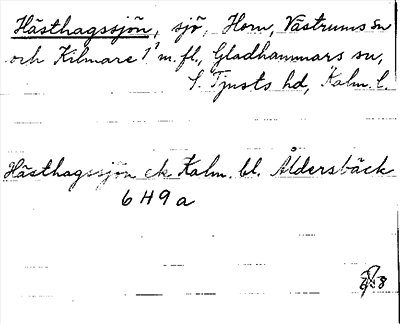 Hästhagssjön, sjö, Horn, Västrums sn
och Kilmare 1¹ m.fl., Gladhammars sn,
S. Tjusts hd, Kalm. l.
Hästhagssjön ek Kalm. bl. Åldersbäck
6 H 9 a